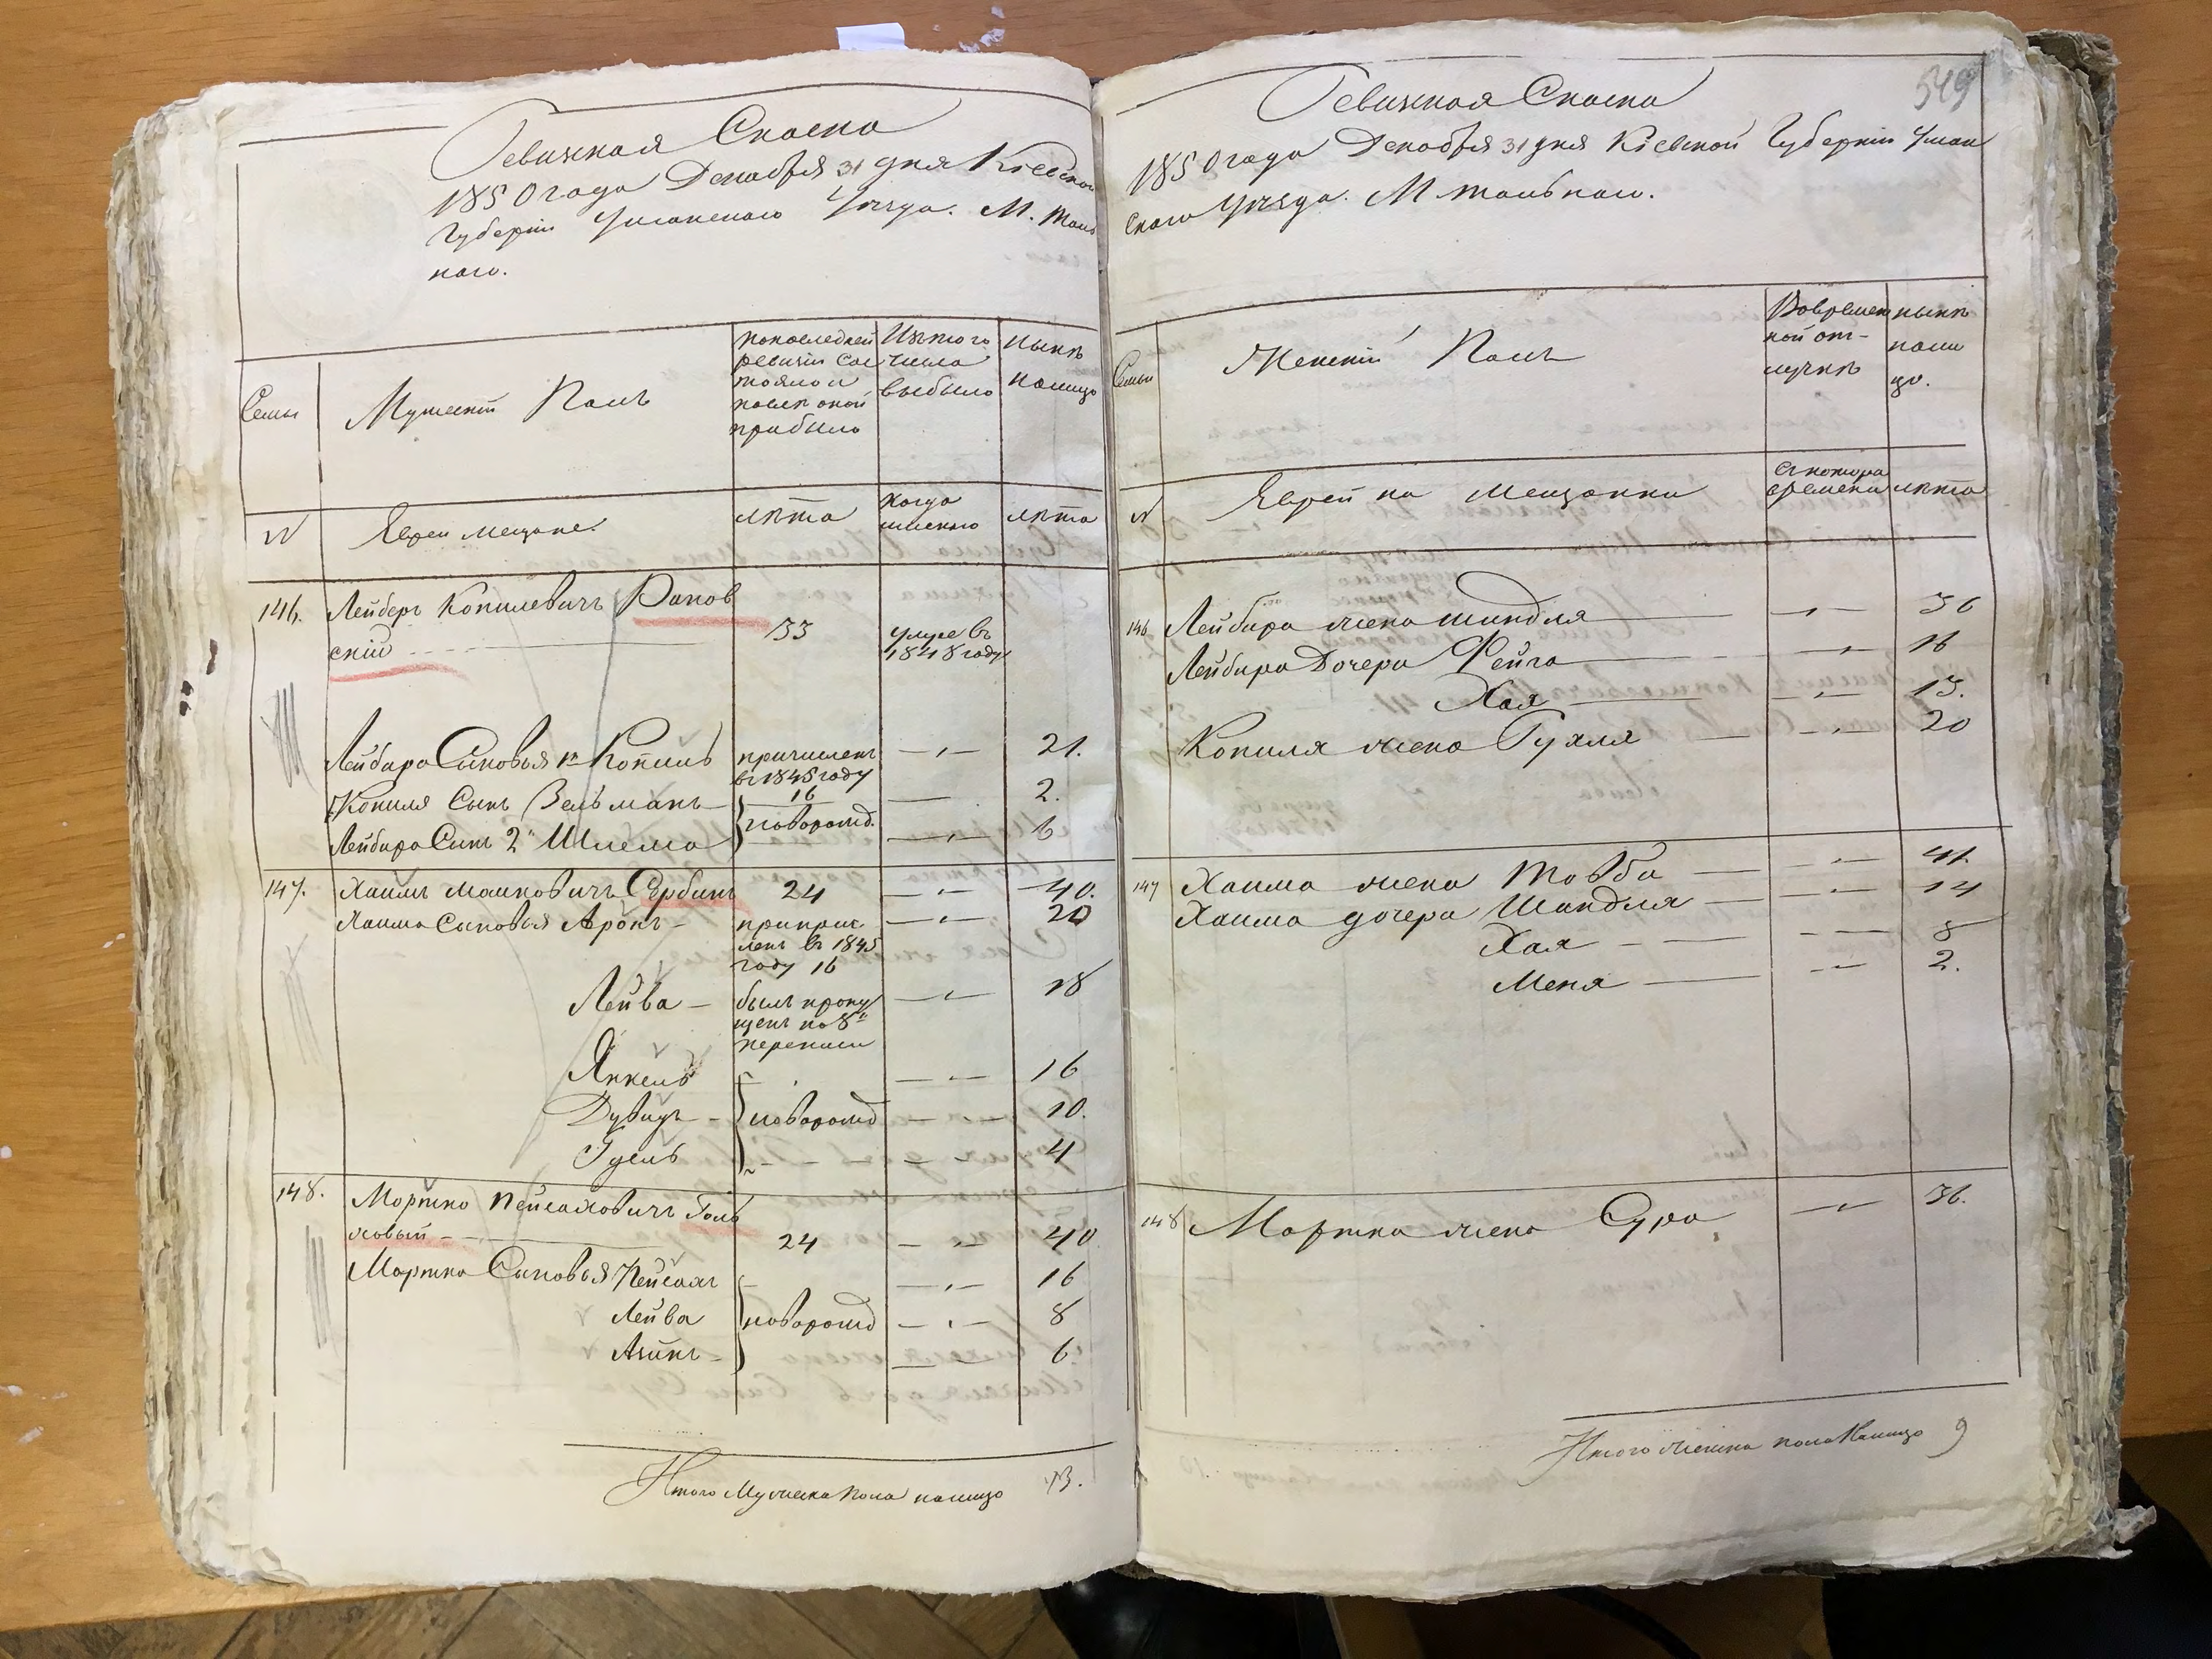 Ревижкая Скаска
1850 года Декабря 31 дня Кіевской
Губерніи Уманскаго Уѣзда. М. Таль
наго.
Семьи
Мужескій Полъ
по последней
ревизіи сос
тояло и
после оной
прибыло
Изъ того
числа
выбыло
Нынѣ
налицо
N
Евреи мещане.
лѣта
когда
именно
лѣта
146.
Лейберъ Копилевичъ Раков
скій
33
умре въ
1848 году
Лейбира Сыновья 1й Копиль
причисленъ
въ 1845 году
16
21.
Копиля Сынъ Зельманъ
новорожд.
2.
Лейбира Сынъ 2й Шлема
6
147.
Хаимъ Машковичъ Сербинъ
24
40.
Хаима Сыновья Аронъ
приприс
ленъ въ 1845
году 16
20
Лейба
былъ пропу
щенъ по 8й
переписи
18
Янкель
16
Дувидъ
новорожд
10.
Гдель
4
148.
Мортко Пейсаховичъ Голь
ховый
24
40
Мортка Сыновья Пейсахъ
16
Лейба
новорожд
8
Азикъ
6
Итого Мужеска пола налицо 13.
549
Ревижкая Скаска
1850 года Декабря 31 дня Кіевской Губерніи Уман
скаго Уѣзда. М Тальнаго.
Семьи
Женскій Полъ
Во времен
ной от-
лучкѣ
нынѣ
нали
цо.
N
Еврейки Мещанки
Съ котора
времени
лѣта
146
Лейбира жена Шиндля
36
Лейбира Дочери Фейга
16
Хая
13.
Копиля жена Рухля
20
147
Хаима жена Товба
41.
Хаима дочери Шиндля
14
Хая
8
Меня
2.
148
Мортка жена Сура
36.
Итого женска пола налицо 9